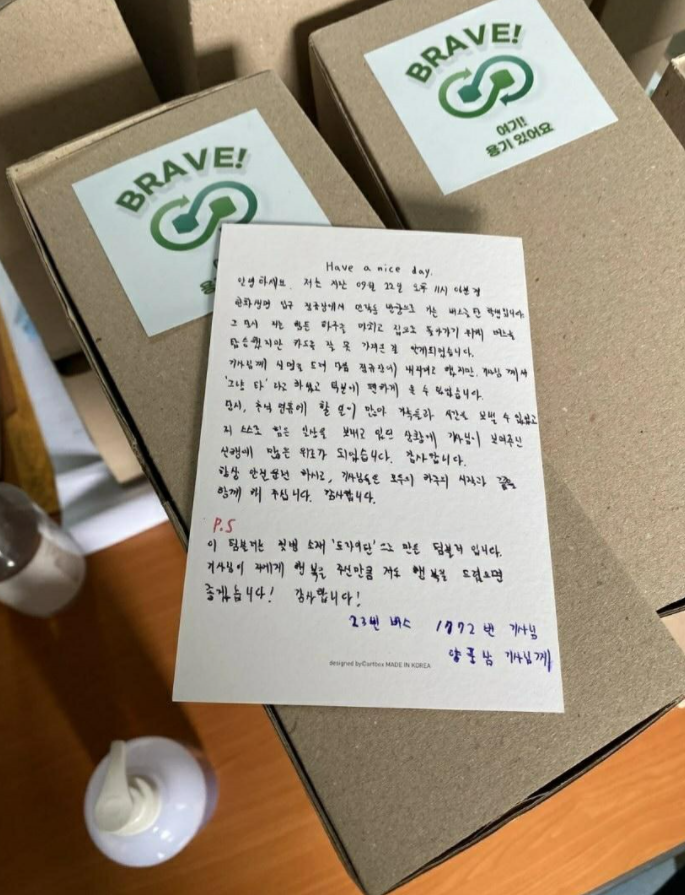 BRAVE!
여기!
용기 있어요
BRAVE!
Have a nice day.
안녕하세요. 저는 지난 09월 22일 오후 11시 06분경
한화생명 입구 정류장에서 방면으로 가는 버스를 탄 학생입니다.
그 당시 저는 힘든 하루를 마치고 집으로 돌아가기 위해 버스를
탑승했지만 카드를 잘 못 가져온 걸 알게되었습니다.
기사님께 말씀을 드려 다음 정류장에 내리려고 했지만, 기사님께서
'그냥 타' 라고 하셨고 덕분에 편하게 올 수 있었습니다.
당시, 추석 연휴에 할 일이 많아 가족들과 시간을 보낼 수 없었고
저 스스로 힘든 일상을 보내고 있던 상황에 기사님이 보여주신
선행에 많은 위로가 되었습니다. 감사합니다.
항상 안전운전 하시고, 기사님들은 모두의 하루의 시작과 끝을
함께 해 주십니다. 감사합니다.
P.S
이 텀블러는 첫번 소재 '도자의단' 으로 만든 텀블러 입니다.
기사님이 저에게 행복을 주신만큼 저도 행복을 드렸으면
좋겠습니다! 감사합니다!
23번 버스 1772번 기사님
양포남 기사님께
designed by©artbox MADE IN KOREA